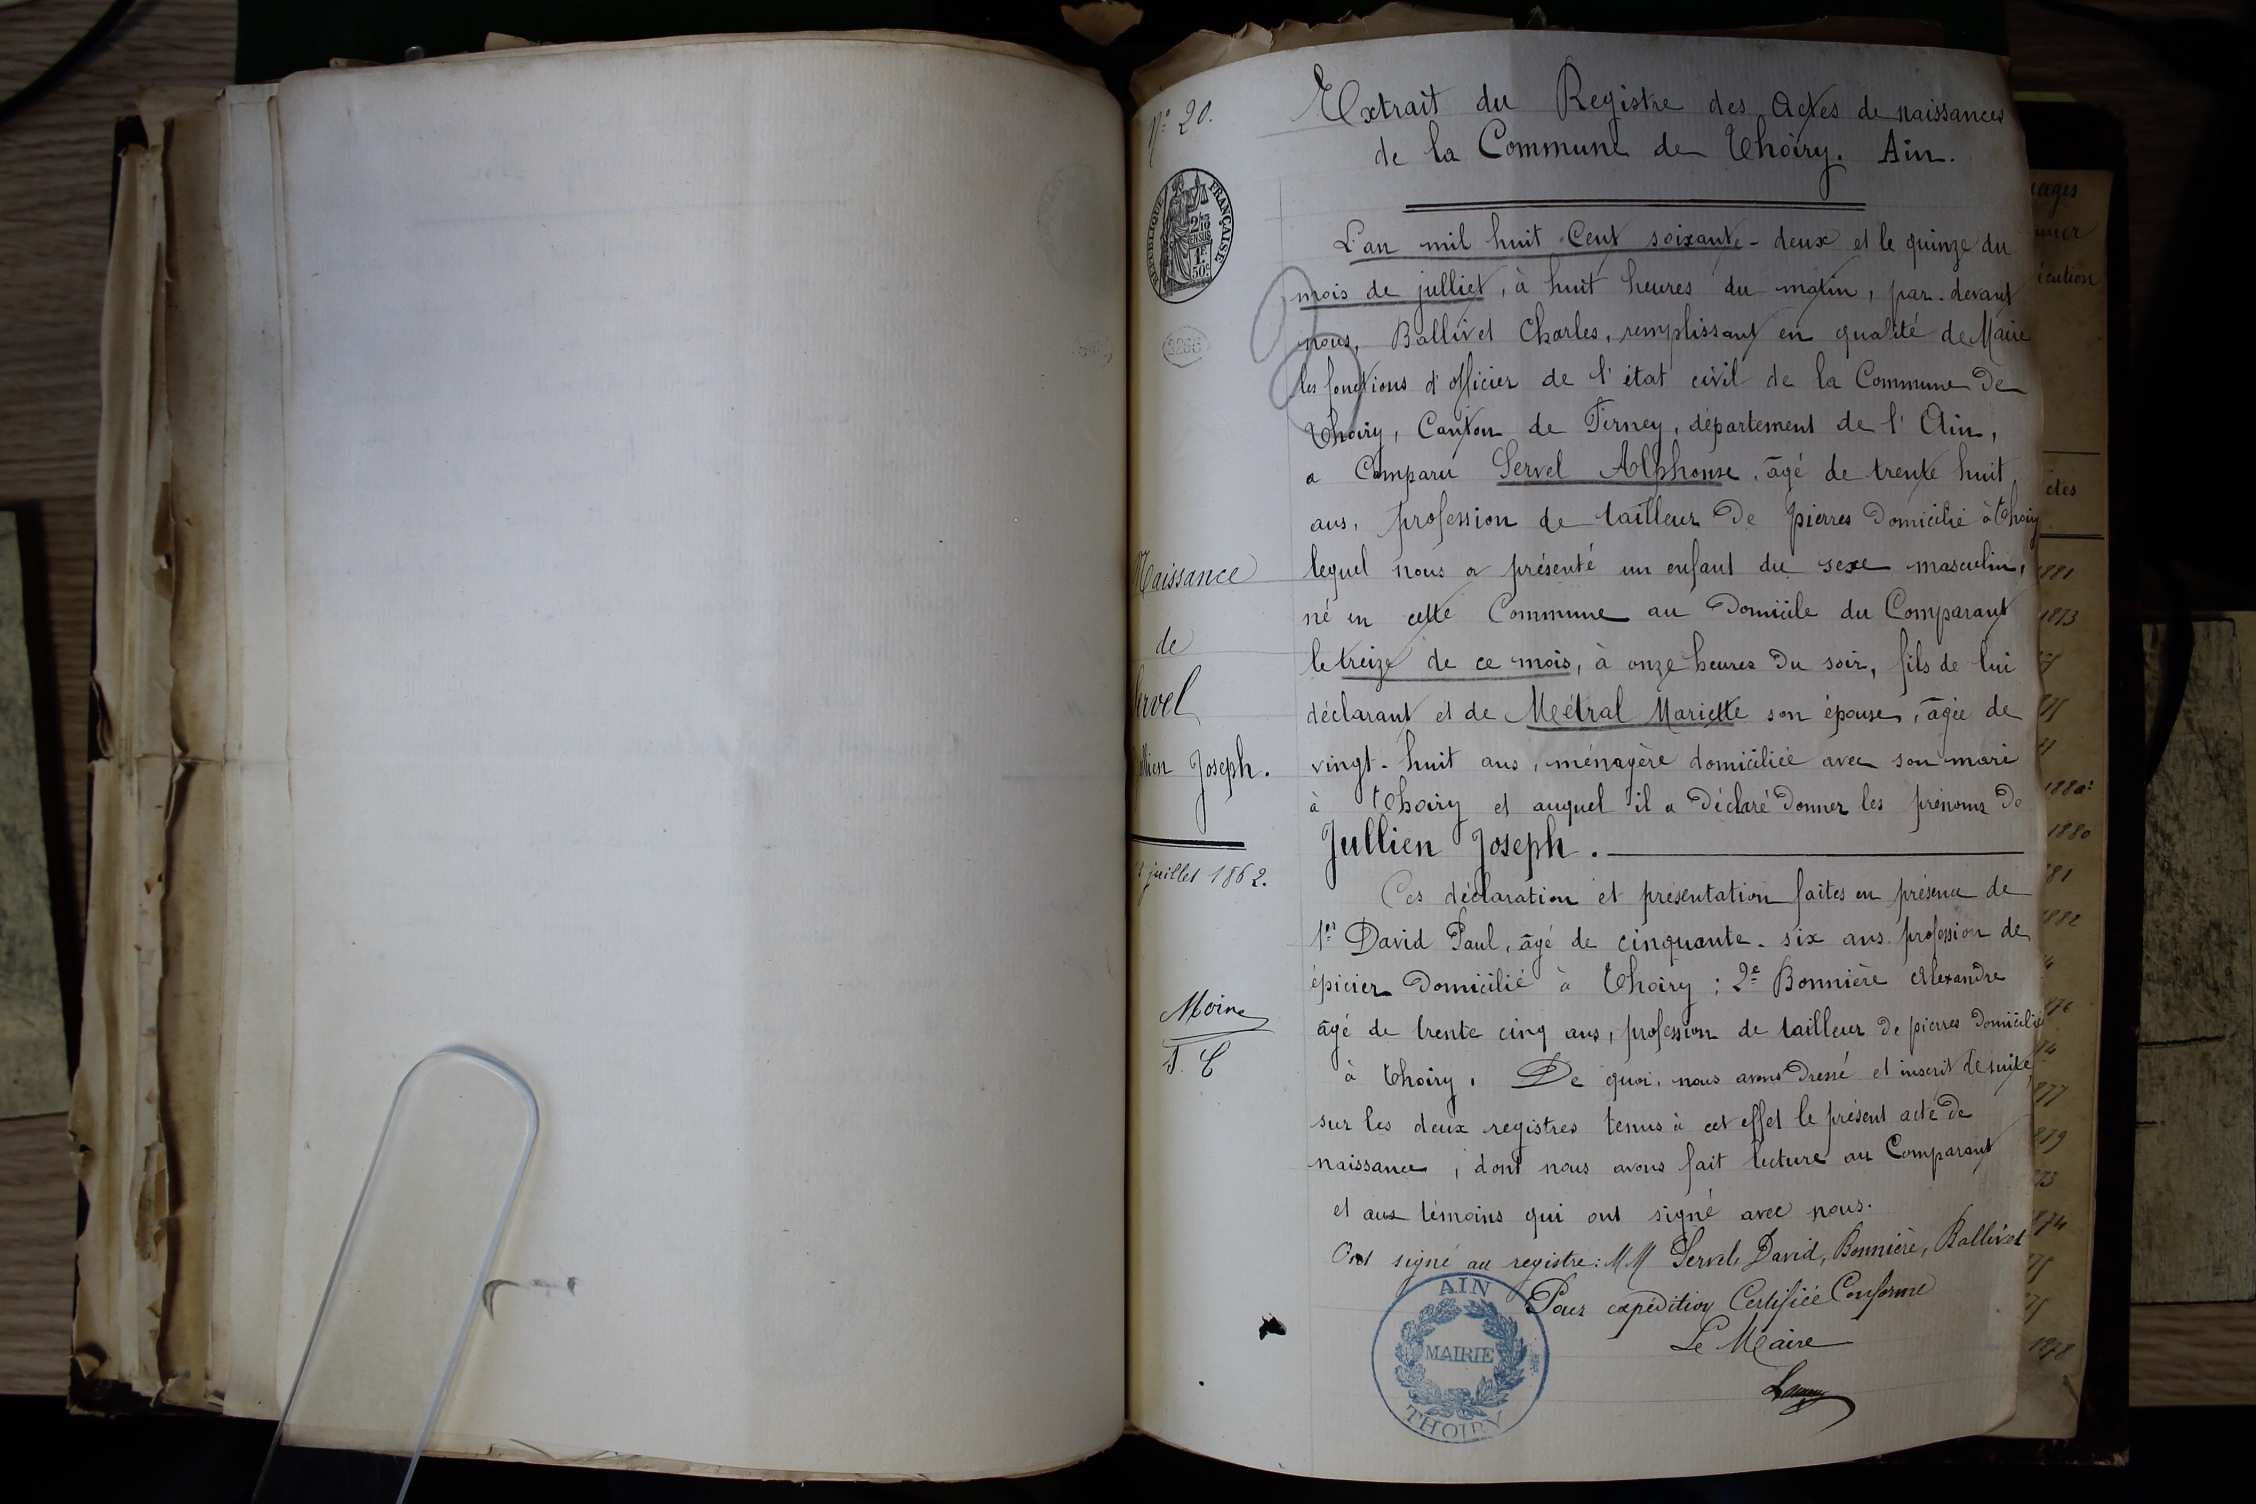 N° 20.
RÉPUBLIQUE FRANÇAISE
2/10
EN SUS
1F.
50c
3286
Naissance
de
Servel
Jullien Joseph.
juillet 1862.
Extrait du Registre des Actes de naissances
de la Commune de Thoiry. Ain.
L'an mil huit Cent soixante-deux et le quinze du
mois de julliet, à huit heures du matin, par-devant
nous, Ballivet Charles, remplissant en qualité de Maire
les fonctions d'officier de l'état civil de la Commune de
Thoiry, Canton de Ferney, département de l'Ain,
a Comparu Servel Alphonse, âgé de trente huit
ans, profession de tailleur de pierres domicilié à Thoiry
lequel nous a présenté un enfant du sexe masculin,
né en cette Commune au domicile du Comparant
le treize de ce mois, à onze heures du soir, fils de lui
déclarant et de Meétral Mariette son épouse, âgée de
vingt-huit ans, ménagère domiciliée avec son mari
à Thoiry et auquel il a déclaré donner les prénoms de
Jullien Joseph.
Ces déclaration et présentation faites en présence de
1er David Paul, âgé de cinquante-six ans profession de
épicier domicilié à Thoiry ; 2e Bonnière Alexandre
âgé de trente cinq ans, profession de tailleur de pierres domicilié
à Thoiry. De quoi, nous avons dressé et inscrit de suite,
sur les deux registres tenus à cet effet le présent acte de
naissance, dont nous avons fait lecture au Comparant
et aux témoins qui ont signé avec nous.
Ont signé au registre : MM Servel, David, Bonnière, Ballivet
Pour expédition Certifiée Conforme
Le Maire
AIN
MAIRIE
THOIRY
1881
1873
1880
1880
1882
1878